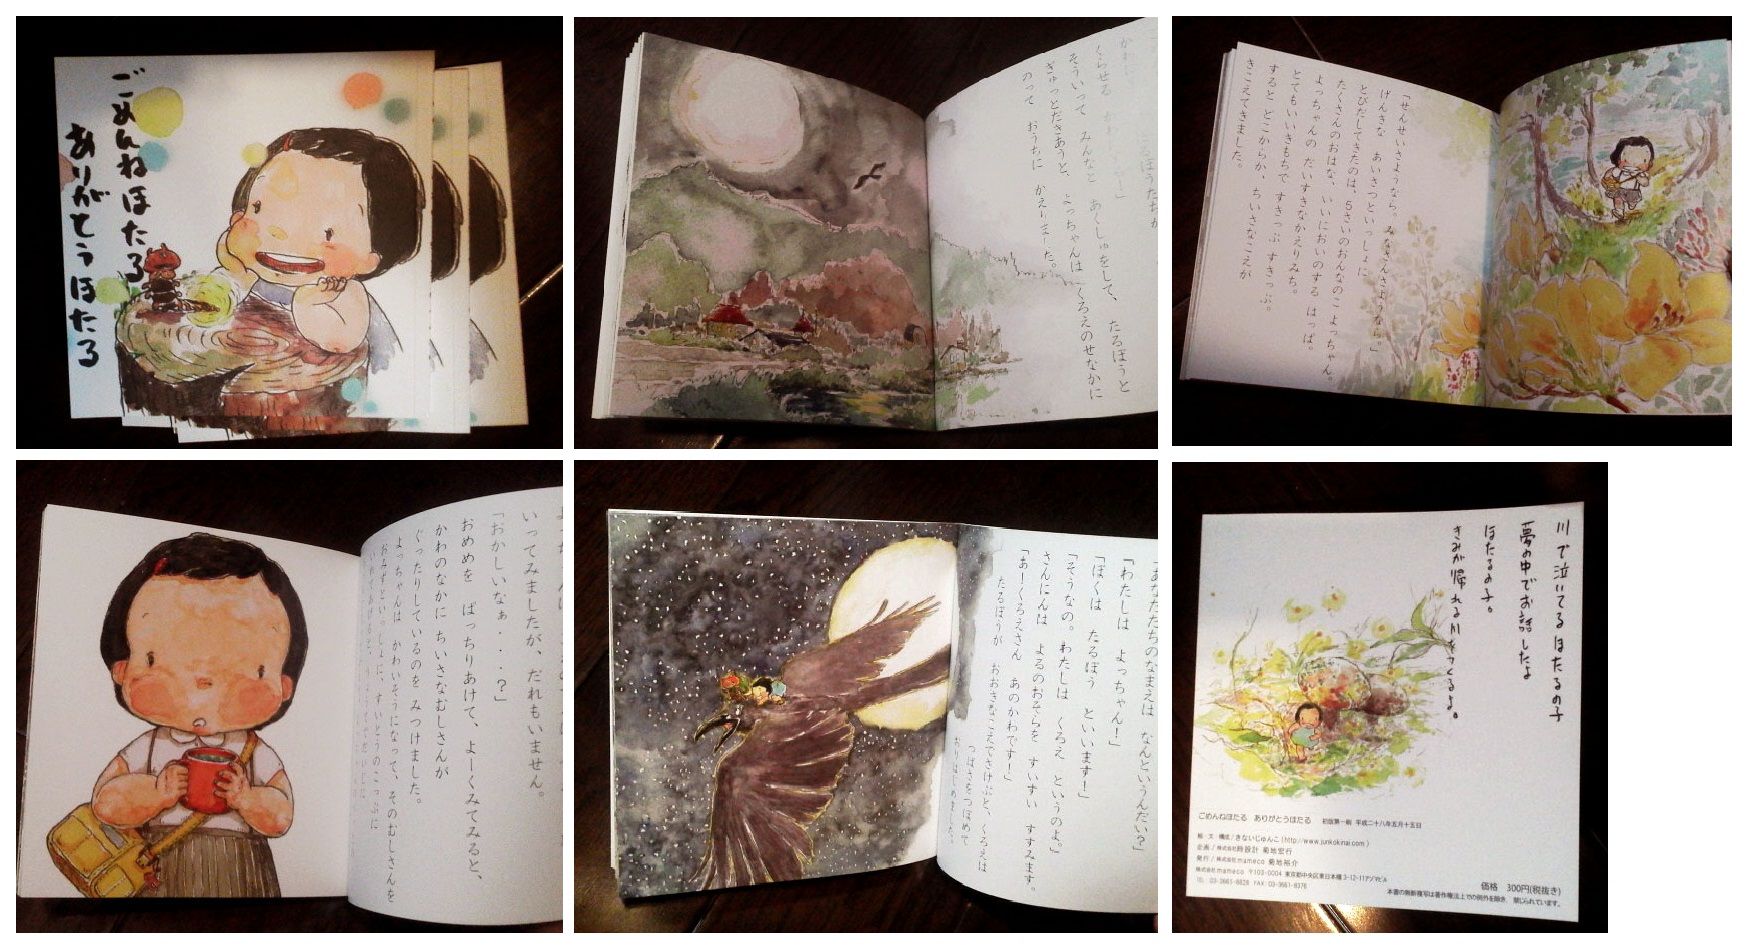 ごめんねほたる
ありがとうほたる
くらせる
そういって みんなと あくしゅをして、 たるぼうと
ぎゅっとだきあうと、 よっちゃんは くろえのせなかに
のって おうちに かえりまーした。
「せんせいさようなら。みなさんさようなら。」
げんきな あいさつといっしょに
とびだしてきたのは、5さいのおんなのこ よっちゃん。
たくさんのおはな、いいにおいのする はっぱ。
よっちゃんの だいすきなかえりみち。
とてもいいきもちで すきっぷ すきっぷ。
すると どこからか、ちいさなこえが
きこえてきました。
いってみましたが、だれもいません。
「おかしいなぁ・・・?」
おめめを ぱっちりあけて、よーくみてみると、
かわのなかに ちいさなむしさんが
ぐったりしているのを みつけました。
よっちゃんは かわいそうになって、そのむしさんを
おみずといっしょに、すいとうのこっぷに
「あなたたちのなまえは なんというんだい?」
「わたしは よっちゃん!」
「ぼくは たるぼう といいます!」
「そうなの。わたしは くろえ というのよ。」
さんにんは よるのおそらを すいすい すすみます。
「あーくろえさん あのかわです!」
たるぼうが おおきなこえでさけぶと、くろえは
つばさをつぼめて
おりはじめました。
川で泣いてる ほたるの子
夢の中でお話したよ
ほたるの子。
きみが帰れる川をつくるよ。
ごめんねほたる ありがとうほたる 初版第一刷 平成二十八年五月十五日
絵・文・構成/きないじゅんこ(http://www.junkokinai.com)
企画/株式会社時設計 菊地宏行
発行/株式会社mameco 菊地裕介
株式会社mameco 〒103-0004 東京都中央区東日本橋3-12-11アヅマビル
TEL 03-3661-8828 FAX 03-3661-8376
価格 300円(税抜き)
本書の無断複写は著作権法上での例外を除き、禁じられています。